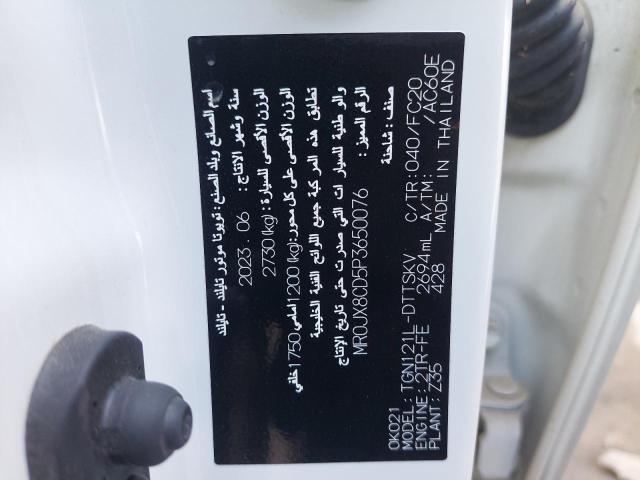 اسم الصانع وبلد الصنع: تويوتا موتور تايلند - تايلند
سنة وشهر الانتاج: 2023. 06
الوزن الأقصى للسيارة: 2730 (kg)
الوزن الأقصى على كل محور: 1200 (kg) امامي 1750 خلفي
تطابق هذه المركبة جميع اللوائح الفنية الخليجية
والوطنية للسيارات التي صدرت حتى تاريخ الإنتاج
الرقم المميز: MR0JX8CD5P3650076
صنف: شاحنة
0K021
MODEL: TGN121L-DTTSKV C/TR: 040/FC20
ENGINE: 2TR-FE 2694mL A/TM: /AC60E
PLANT: Z35 428 MADE IN THAILAND